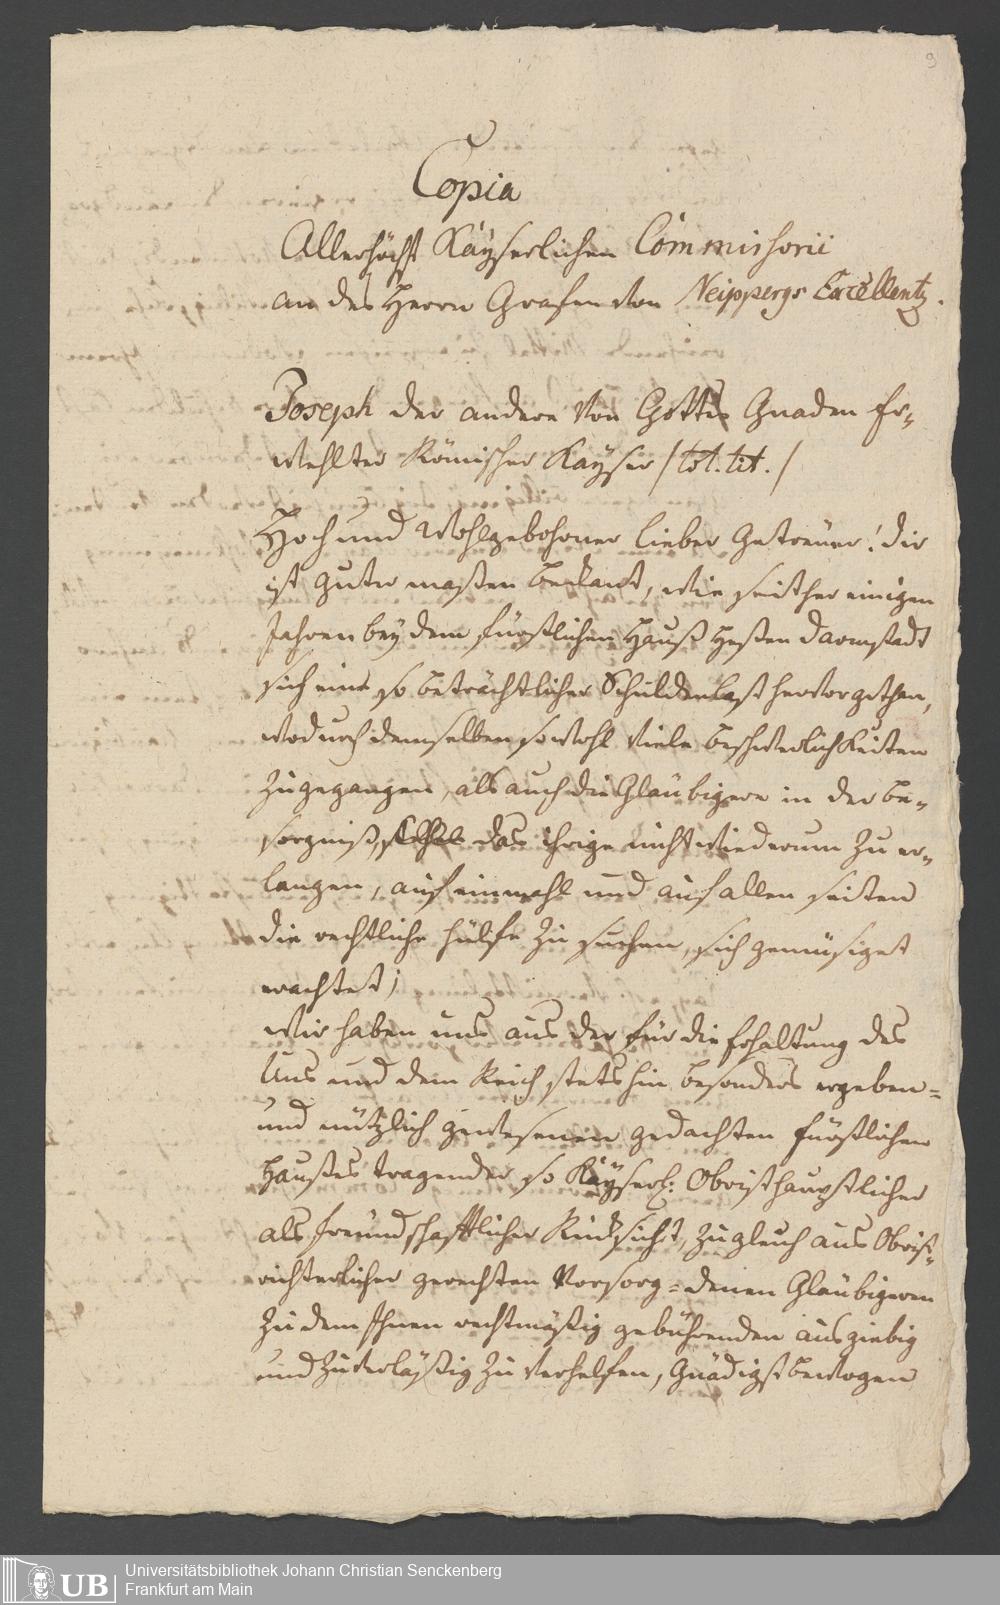 9
Copia
Allerhöchst Kayserlichen Commissorii
an des Herrn Grafen von Neippergs Excellentz.
Joseph der andere von Gottes Gnaden Er-
wehlter Römischer Kayser /tot. tit./
Hoch und Wohlgebohrner lieber Getreuer! dir
ist guter maßen bekant, wie seither einigen
Jahren bey dem fürstlichen Hauß Heßen Darmstadt
sich eine so beträchtlicher Schuldenlast hervorgethan,
wodurch demselben sowohl viele beschwerlichkeiten
zugegangen, als auch die Gläubigere in der be-
sorgniß, das ihrige nicht wiederum zu er-
langen, auf einmahl und auf allen seiten
die rechtliche hülfe zu suchen, sich gemüsiget
erachtet;
Wir haben uns aus der für die Erhaltung des
Uns und dem Reich stetshin besonders ergeben-
und nützlich gewesenen gedachten fürstlichen
Haußes tragender so Kayserl: Obristhauptlicher
als freundschafftlicher Rücksicht, zugleich aus Obrist-
richterlicher gerechten Vorsorg- denen Gläubigeren
zu dem Ihnen rechtmäßig gebührenden ausgiebig
und zuverläßig zu verhelfen, Gnädigst bewogen
Universitätsbibliothek Johann Christian Senckenberg
Frankfurt am Main
UB